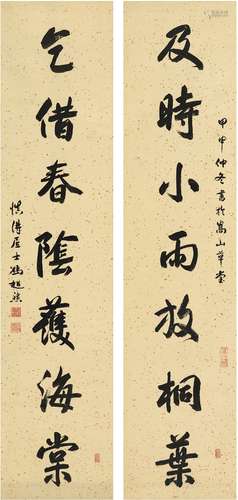 及時小雨放桐葉
甲申仲冬書於嵩山草堂
乞借春陰護海棠
慎得居士馮超然